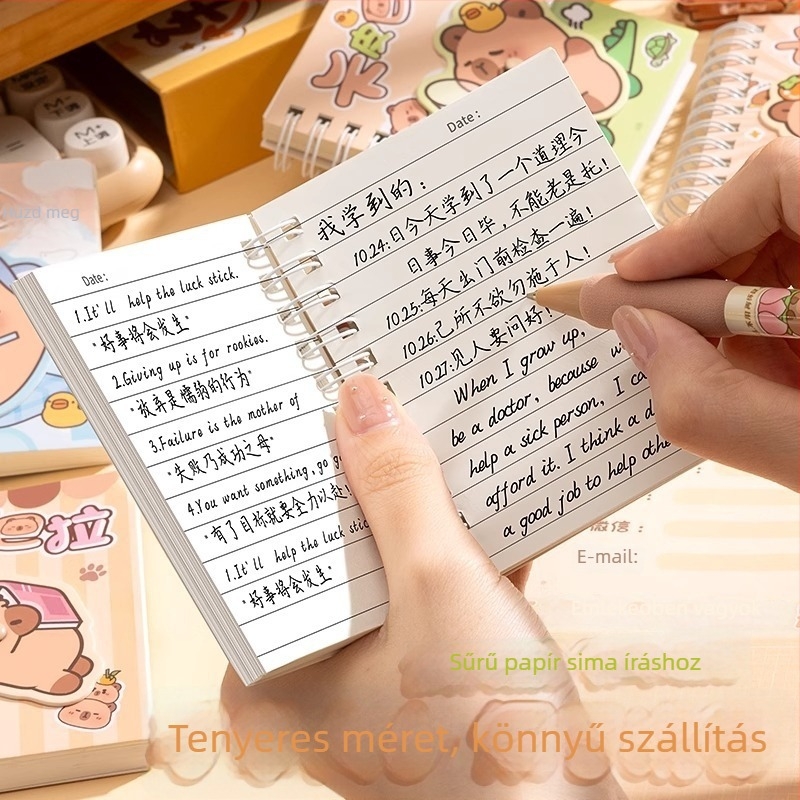 卡皮
M+
上调
M-
上调
uzd meg
Date:
1.It'll help the luck stick.
"好事将会发生"
2.Giving up is for rookies.
"放弃是懦弱的行为"
3.Failure is the mother of
"失败乃成功之母"
4.You want something, go g
"有了目标就要全力以赴
1.It'll help the luck stic
"好事将会发生"
Date:
我学到的：
10.24:日今天学到了一个道理今
日事今日毕，不能老是拖！
10.25:每天出门前检查一遍！
10.26:己所不欲勿施于人！
10.27:见人要问好！
When I grow up,
be a doctor, because w
help a sick person, I ca
afford it. I think a d
a good job to help othe
巴拉
微信：
E-mail:
Sűrű papír sima íráshoz
Tenyeres méret, könnyű szállítás